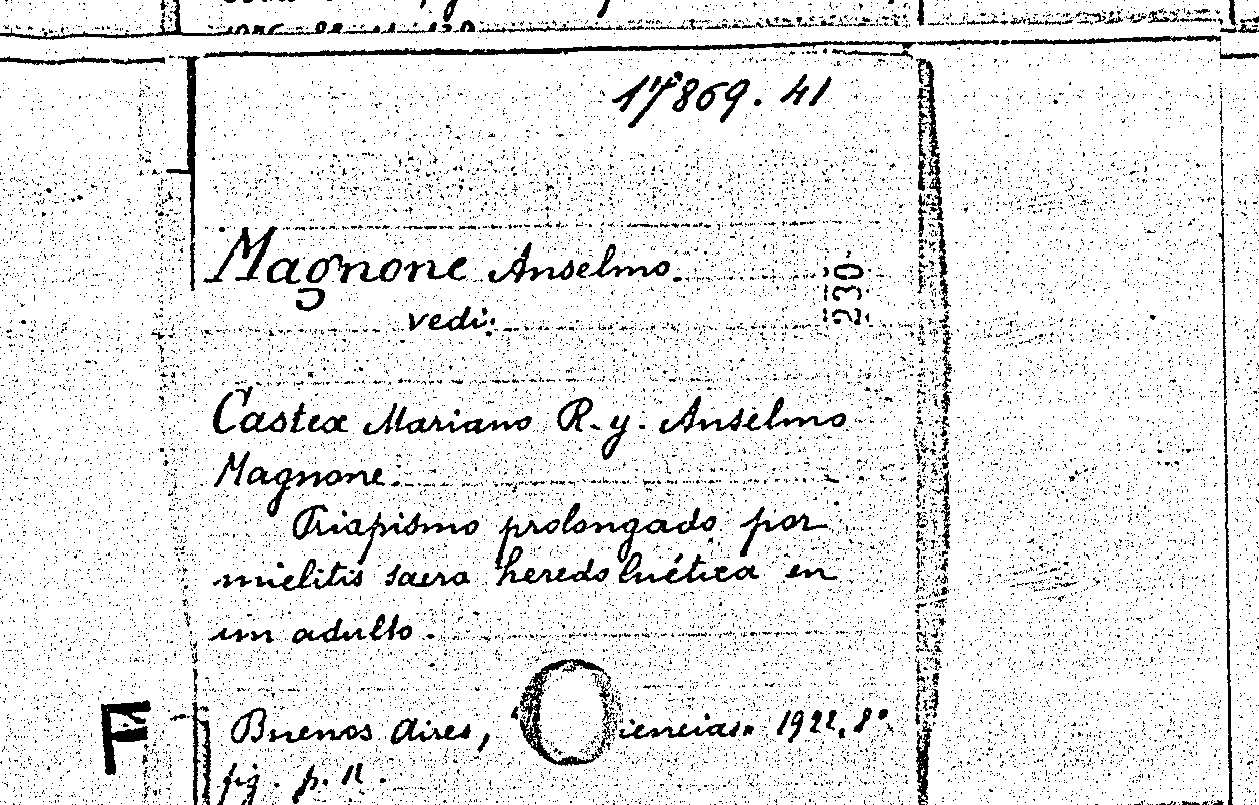 17869.41
Magnone Anselmo.
vedi:
230.
Castex Mariano R. y. Anselmo
Magnone.
Priapismo prolongado por
mielitis sacra heredoluética en
un adulto.
F
Buenos Aires, iencias. 1922. 8°
fig. p. 11.